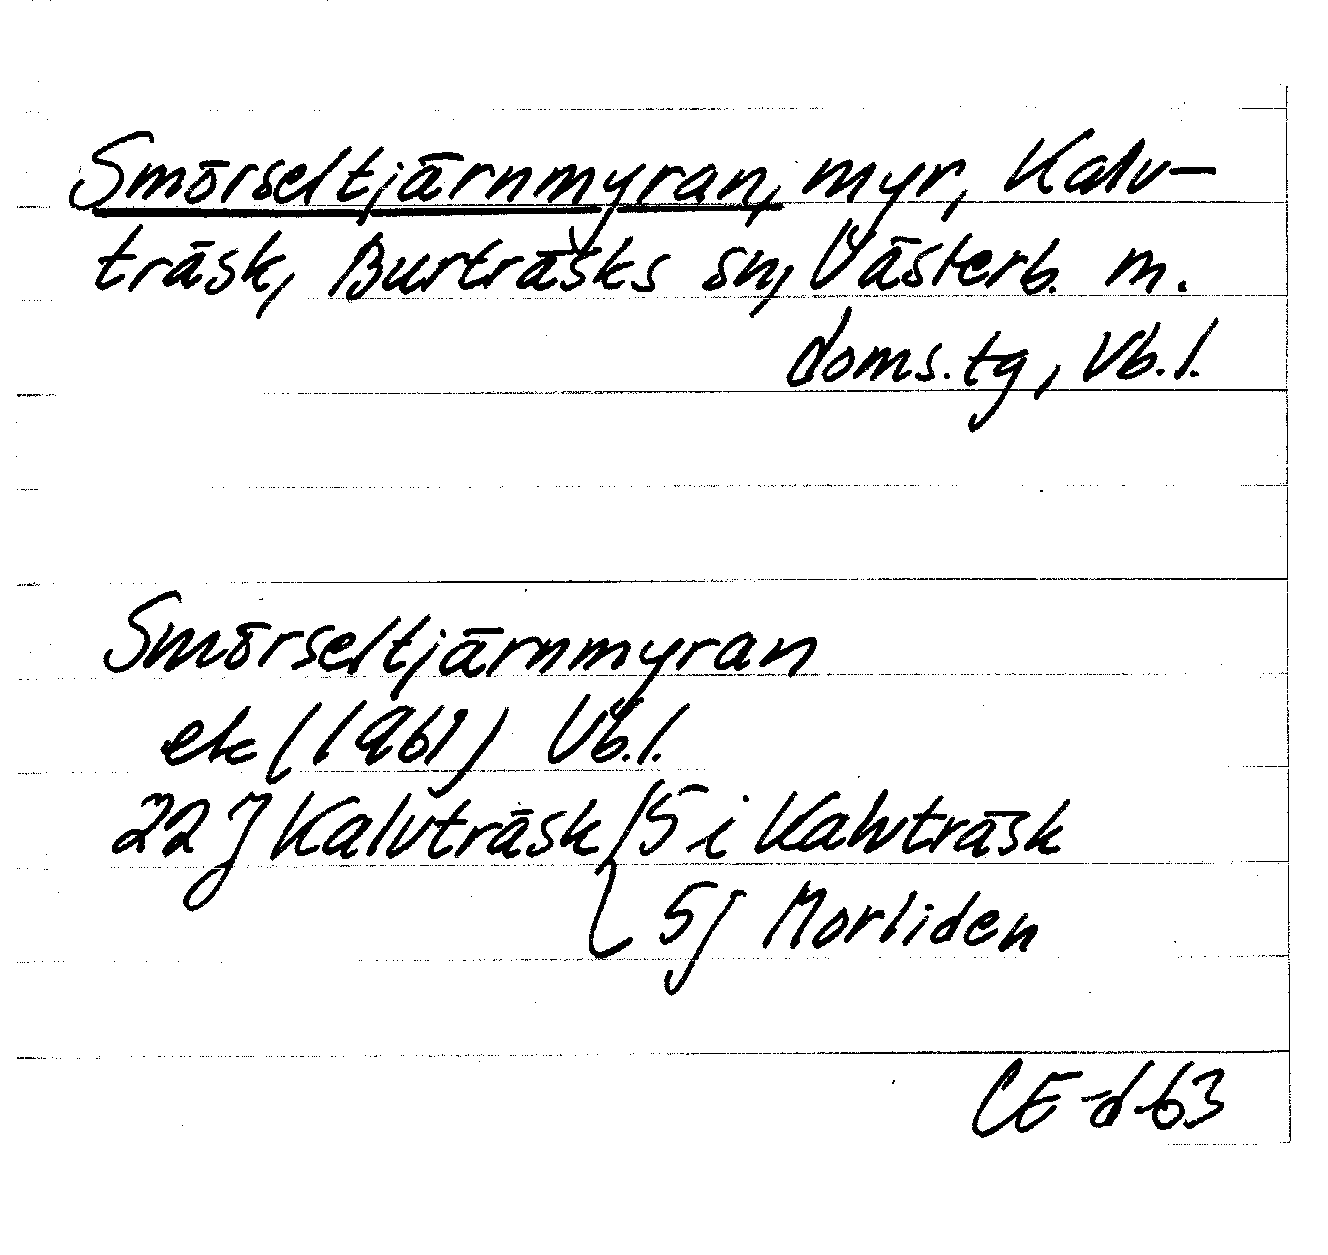 Smörseltjärnmyran, myr, Kalv-
träsk, Burträsks sn, Västerb. m.
doms.tg, Vb.l.
Smörseltjärnmyran
ek (1961) Vb.l.
22 J Kalvträsk / 5 i Kalvträsk
{ 5j Morliden
CE-d-63